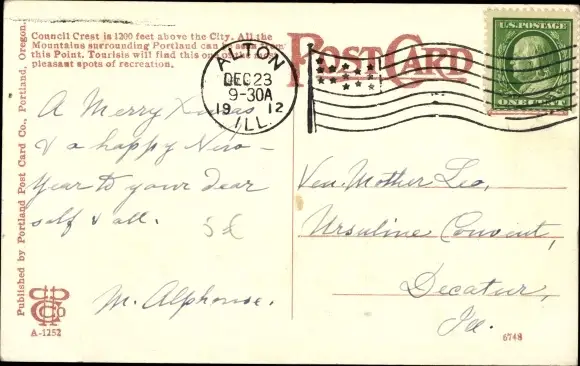 Council Crest is 1200 feet above the City. All the
Mountains surrounding Portland can be seen from
this Point. Tourists will find this one of the most
pleasant spots of recreation.
POST CARD
ALTON
DEC 23
9-30A
19 12
ILL.
U.S. POSTAGE
ONE CENT
A Merry Xmas
& a happy New-
Year to your dear
self & all.
M. Alphonse.
Ven. Mother Leo,
Ursuline Convent,
Decatur,
Published by Portland Post Card Co., Portland, Oregon.
A-1252
6748